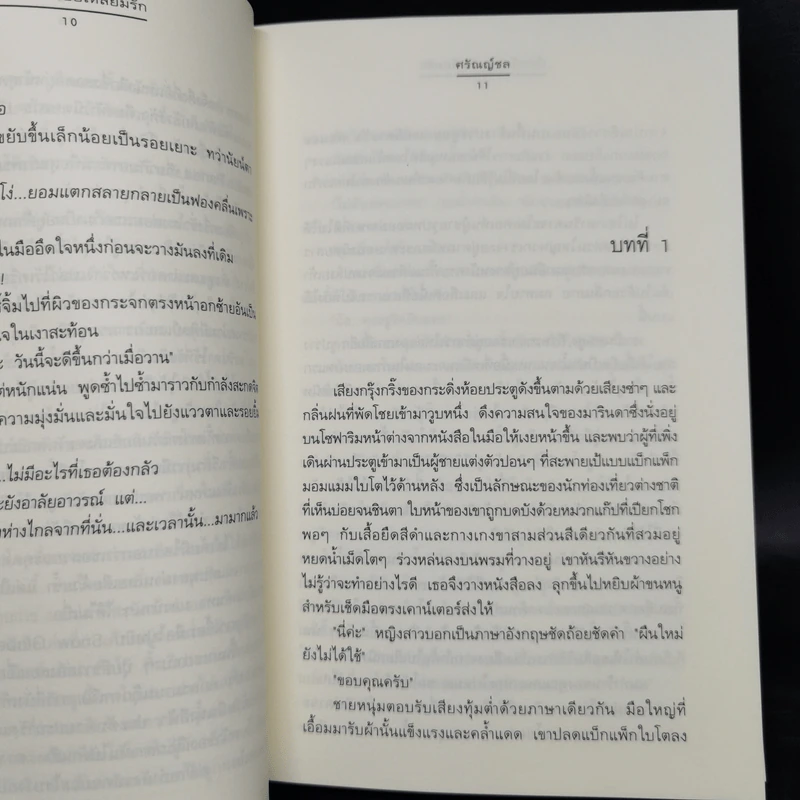 10
ขยับขึ้นเล็กน้อยเป็นรอยเยาะ ทว่านัยน์ตา
โง่...ยอมแตกสลายกลายเป็นฟองคลื่นเพราะ
ในมืออึดใจหนึ่งก่อนจะวางมันลงที่เดิม
จิ้มไปที่ผิวของกระจกตรงหน้าอกซ้ายอันเป็น
ใจในเงาสะท้อน
วันนี้จะดีขึ้นกว่าเมื่อวาน"
หนักแน่น พูดซ้ำไปซ้ำมาราวกับกำลังสะกดจิต
ความมุ่งมั่นและมั่นใจไปยังแววตาและรอยยิ้ม
...ไม่มีอะไรที่เธอต้องกลัว
ยังอาลัยอาวรณ์ แต่...
ห่างไกลจากที่นั่น...และเวลานั้น...มามากแล้ว
ศรัณญ์ชล
11
บทที่ 1
เสียงกรุ๊งกริ๊งของกระดิ่งห้อยประตูดังขึ้นตามด้วยเสียงซ่าๆ และ
กลิ่นฝนที่พัดโชยเข้ามาวูบหนึ่ง ดึงความสนใจของมารินดาซึ่งนั่งอยู่
บนโซฟาริมหน้าต่างจากหนังสือในมือให้เงยหน้าขึ้น และพบว่าผู้ที่เพิ่ง
เดินผ่านประตูเข้ามาเป็นผู้ชายแต่งตัวปอนๆ ที่สะพายเป้แบบแบ็กแพ็ก
มอมแมมใบโตไว้ด้านหลัง ซึ่งเป็นลักษณะของนักท่องเที่ยวต่างชาติ
ที่เห็นบ่อยจนชินตา ใบหน้าของเขาถูกบดบังด้วยหมวกแก๊ปที่เปียกโชก
พอๆ กับเสื้อยืดสีดำและกางเกงขาสามส่วนสีเดียวกันที่สวมอยู่
หยดน้ำเม็ดโตๆ ร่วงหล่นลงบนพรมที่วางอยู่ เขาหันรีหันขวางอย่าง
ไม่รู้ว่าจะทำอย่างไรดี เธอจึงวางหนังสือลง ลุกขึ้นไปหยิบผ้าขนหนู
สำหรับเช็ดมือตรงเคาน์เตอร์ส่งให้
"นี่ค่ะ" หญิงสาวบอกเป็นภาษาอังกฤษชัดถ้อยชัดคำ "ผืนใหม่
ยังไม่ได้ใช้"
"ขอบคุณครับ"
ชายหนุ่มตอบรับเสียงทุ้มต่ำด้วยภาษาเดียวกัน มือใหญ่ที่
เอื้อมมารับผ้านั้นแข็งแรงและคล้ำแดด เขาปลดแบ็กแพ็กใบโตลง